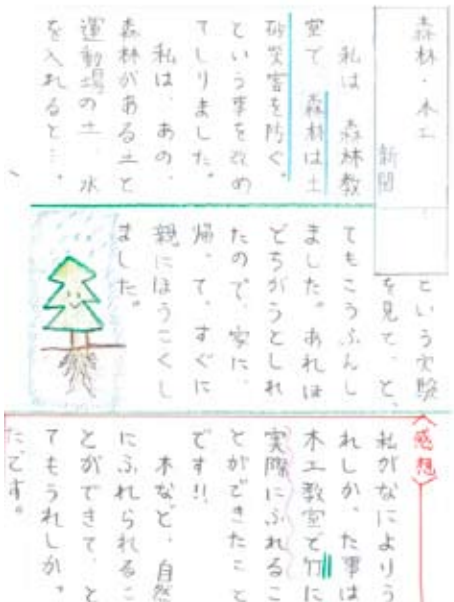 森林・木工
新聞
私は、森林教
室で、森林は土
砂災害を防ぐ。
という事を改め
てしりました。
私は、あの、
森林がある土と
運動場の土、水
を入れると…。
という実験
を見て、と
てもこうふんし
ました。あれは
どちがうとしれ
たので、家に、
帰って、すぐに
親にほうこくし
ました。
〈感想〉
私がなによりう
れしかった事は
木工教室で竹に
実際にふれるこ
とができたこと
です!!
木など、自然
にふれられるこ
とができて、と
てもうれしかっ
たです。